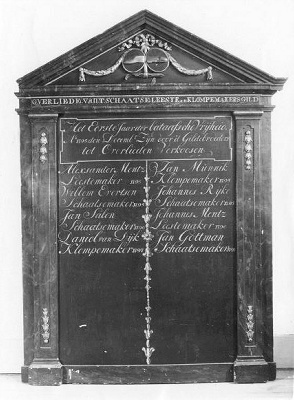 OVERLIEDE VAN'T SCHAATSE LEESTE EN KLOMPEMAKERS GILD
Het Eerste Jaar der Bataafsche Vryheid,
Worden Deese Zijn door 't Gildebroeders
tot Overlieden Verkoosen
Alexsander Montz
Leestemaker
Willem Evertsen
Schaatsemaker
Jan Salen
Schaatsemaker
Daniel van Dyk
Klompemaker
Jan Münnik
Klompemaker
Johannes Ryke
Schaatsemaker
Johannis Montz
Leestemaker
Jan Gottman
Schaatsemaker